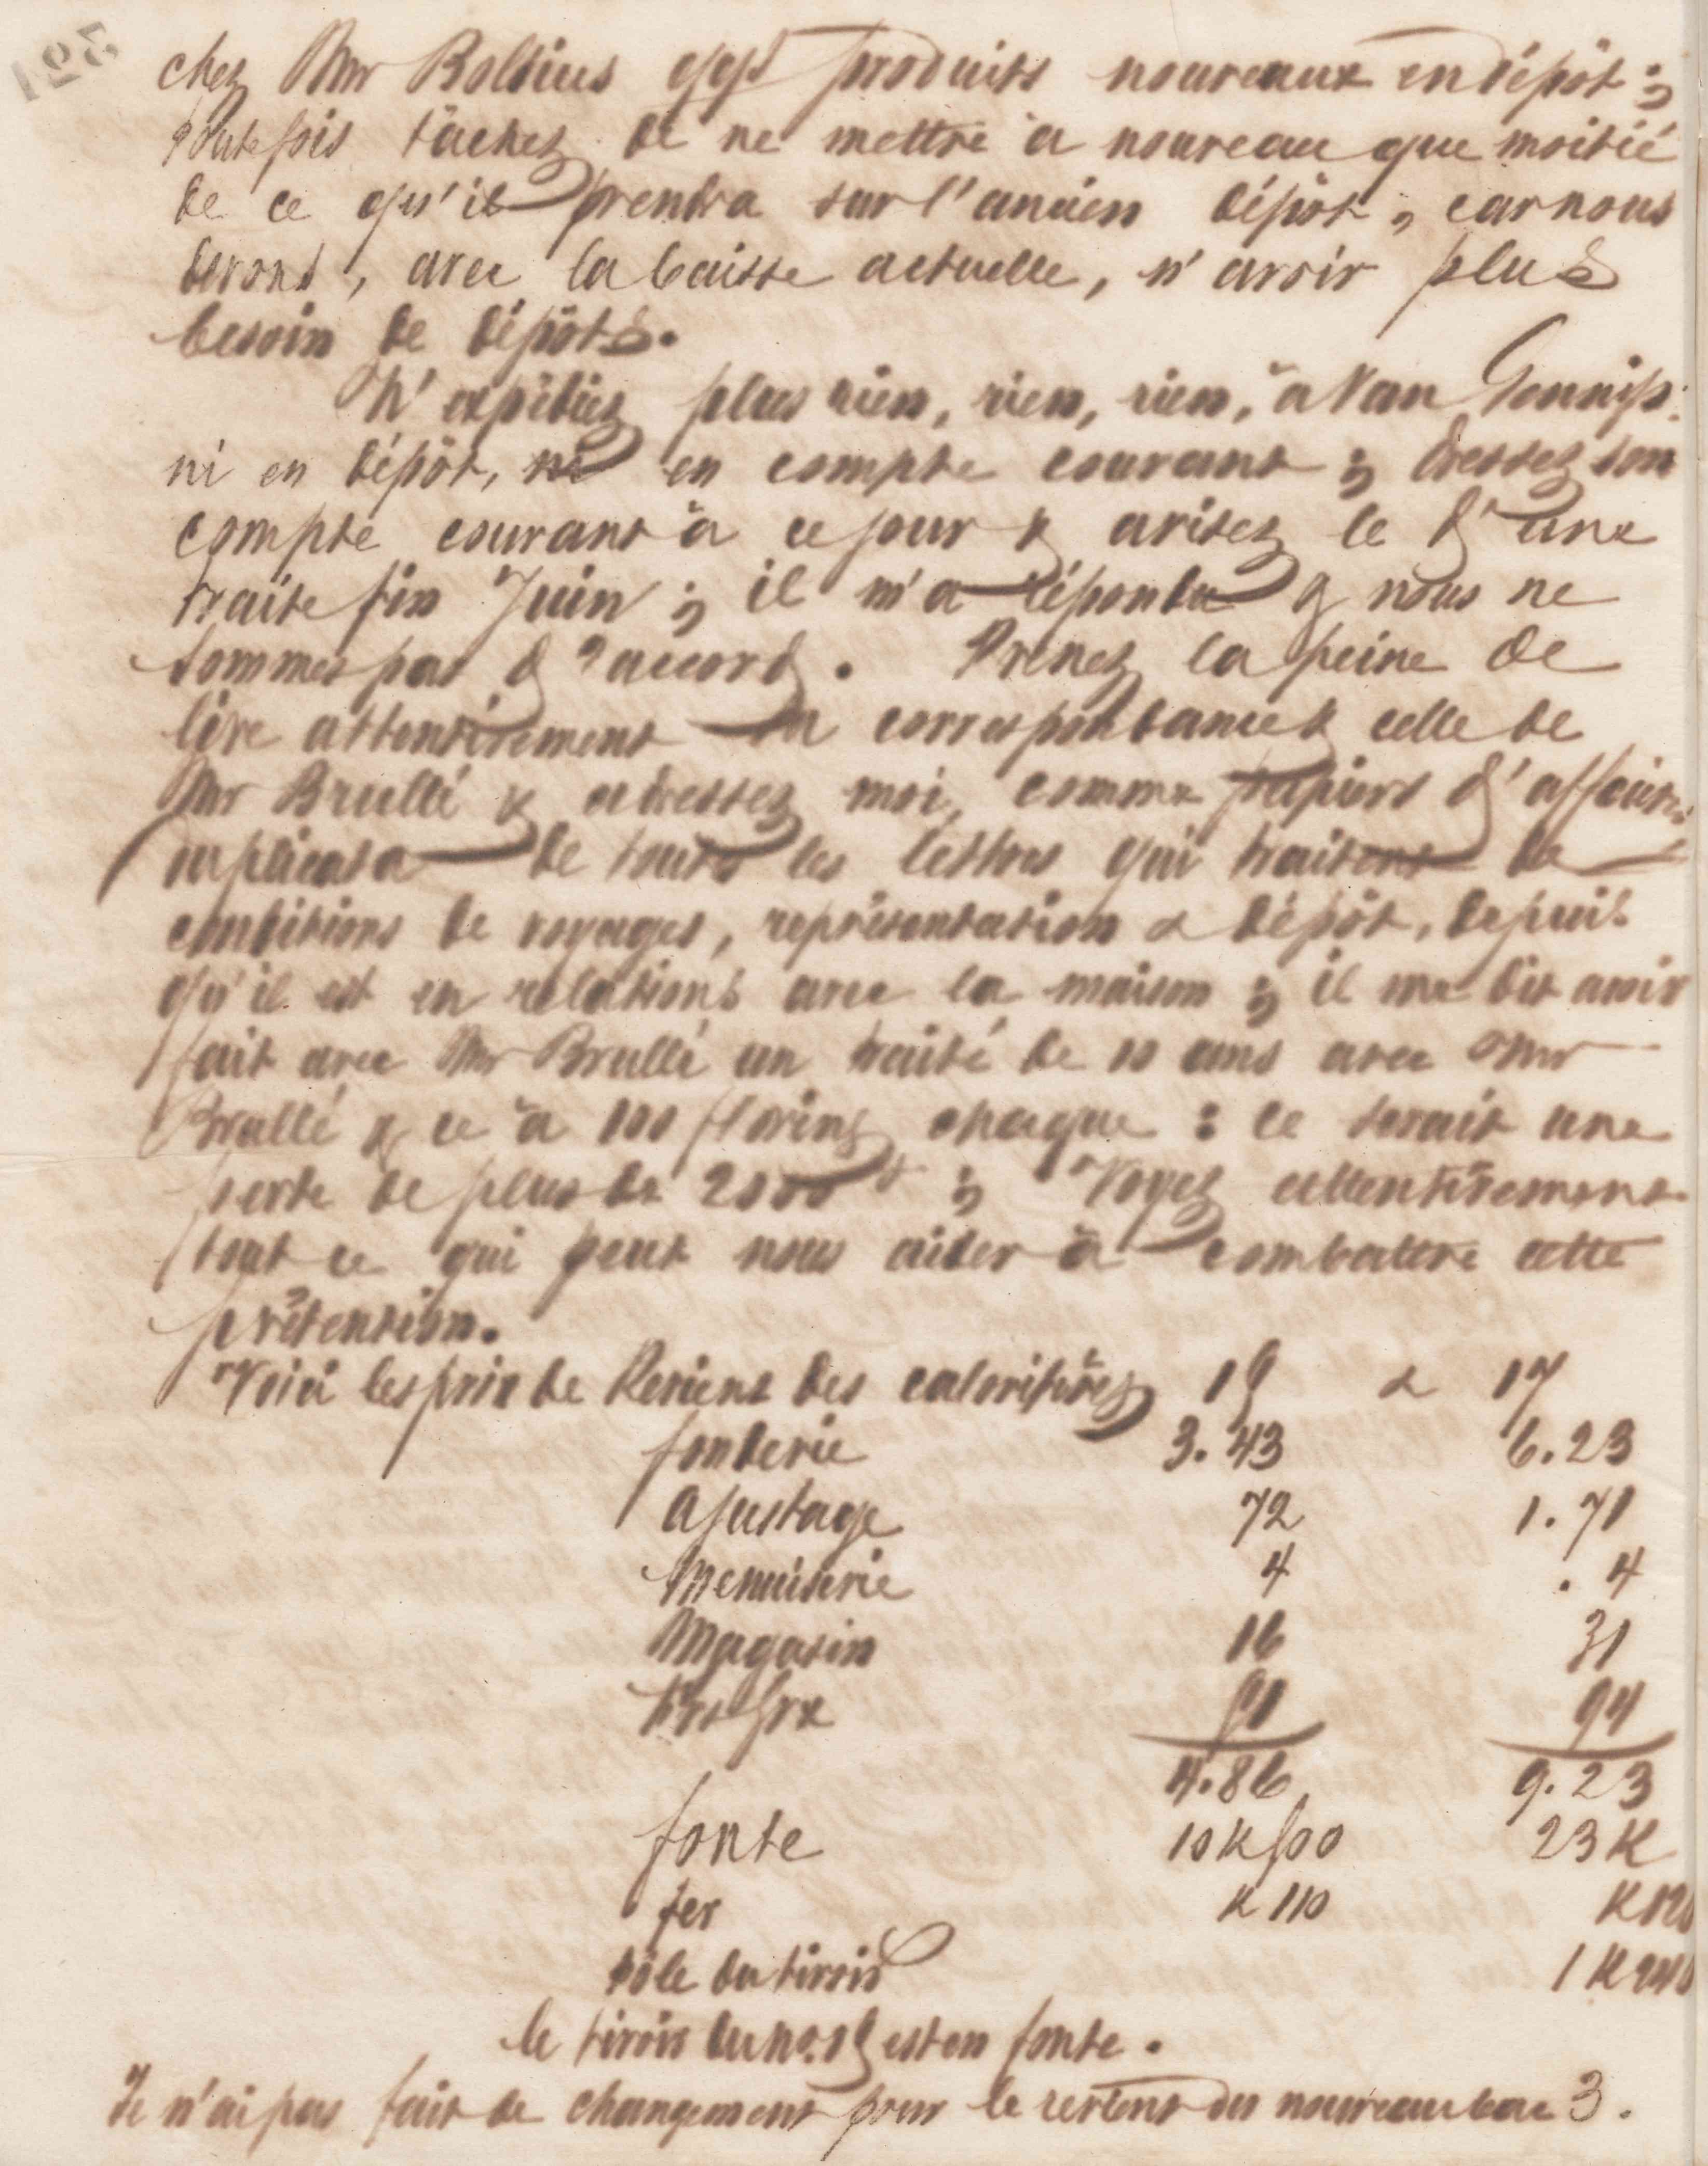 321
chez Mr Boltius qqs produits nouveaux en dépôt ;
Toutefois tâchez de ne mettre à nouveau que moitié
de ce qu'il prendra sur l'ancien dépôt, car nous
devons, avec la baisse actuelle, n'avoir plus
besoin de dépôts.
N'expédiez plus rien, rien, rien, à Van
ni en dépôt, ni en compte courant ; dressez son
compte courant à ce jour & avisez le d'une
traite fin Juin ; il m'a répondu q nous ne
sommes pas d'accord. Prenez la peine de
lire attentivement sa correspondance & celle de
Mr Brullé & adressez moi, comme papiers d'affaires
duplicata de toutes les lettres qui traitent de
conditions de voyages, représentation & dépôt, depuis
qu'il est en relations avec la maison ; il me dit avoir
fait avec Mr Brullé un traité de 10 ans avec Mr
Brullé & ce à 100 florins chaque : ce serait une
perte de plus de 2000 f ; Voyez attentivement
tout ce qui peut nous aider à combattre cette
prétention.
Voici les prix de Revient des calorifères 19 & 17
fonderie 3.43 6.23
Ajustage 72 1.71
Menuiserie 4 . 4
Magasin 16 31
91 94
4.86 9.23
fonte 10 K 500 23 K
fer K 110 K 120
tôle du tiroir 1 K 240
le tiroir du no. 19 est en fonte.
Je n'ai pas fait de changement pour le revient du nouveau bac 3.